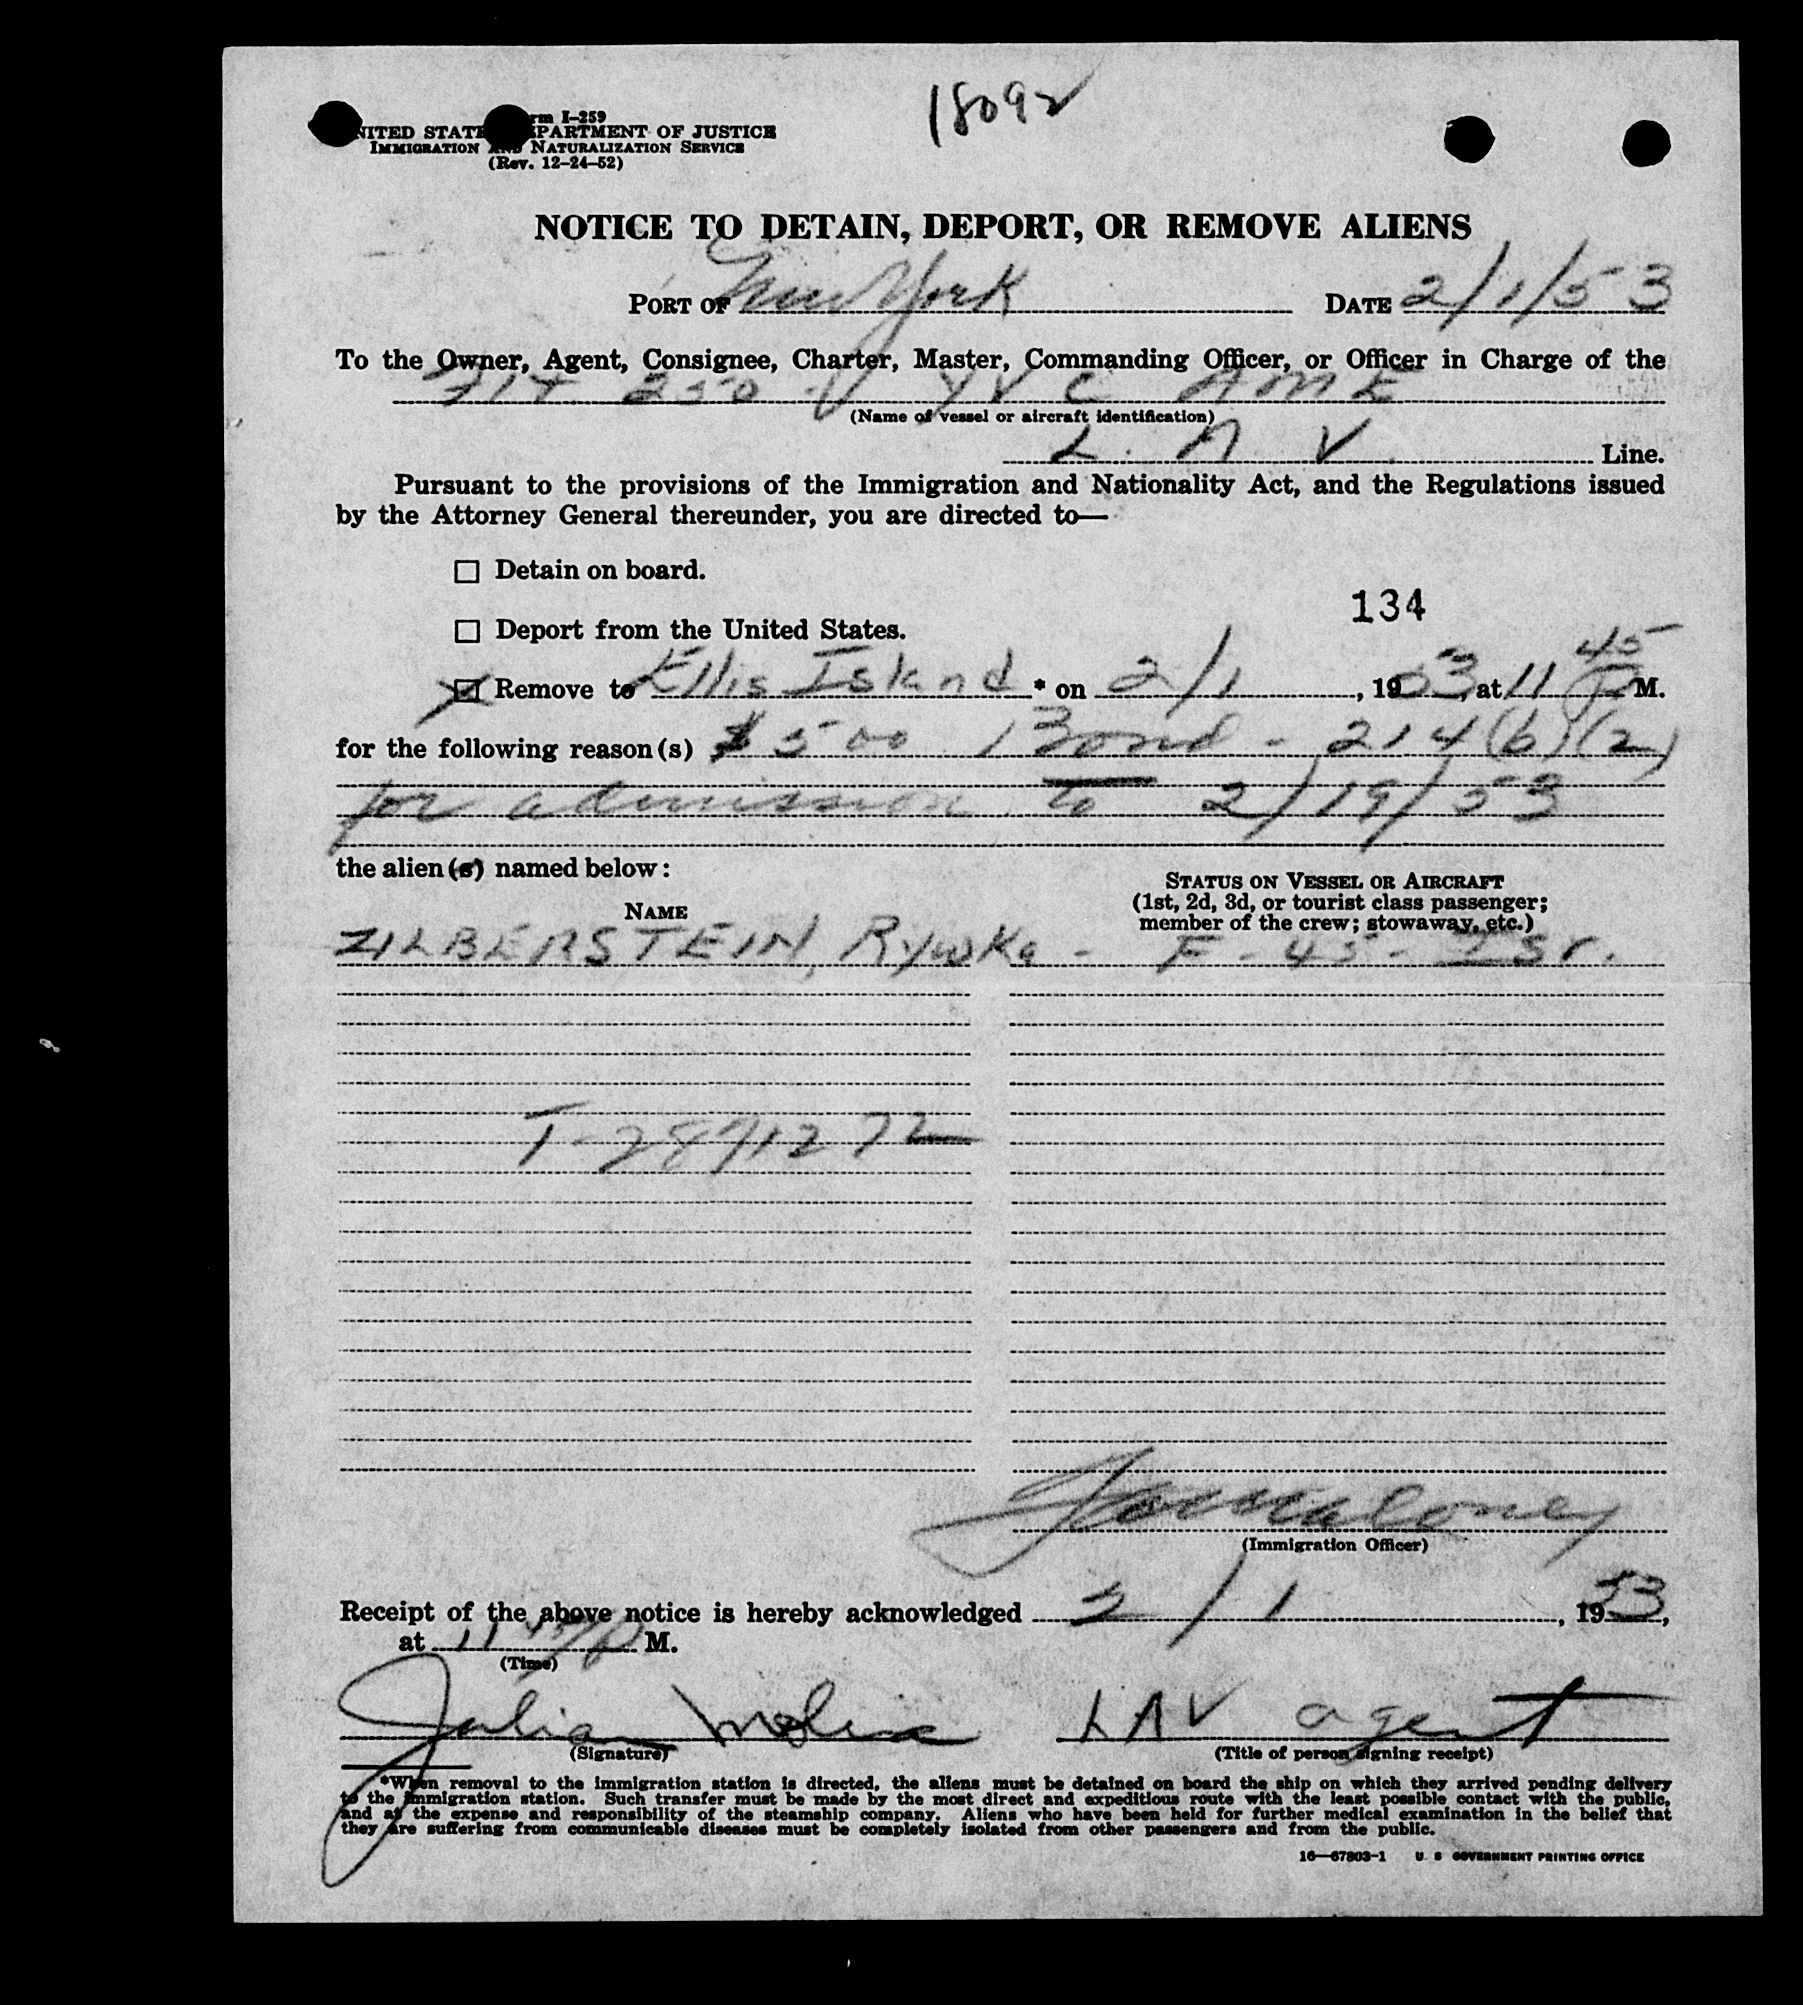 18092
Form I-259
UNITED STATES DEPARTMENT OF JUSTICE
IMMIGRATION AND NATURALIZATION SERVICE
(Rev. 12-24-52)
NOTICE TO DETAIN, DEPORT, OR REMOVE ALIENS
PORT OF New York DATE 2/1/53
To the Owner, Agent, Consignee, Charter, Master, Commanding Officer, or Officer in Charge of the
Flt. 250 YVC AME
(Name of vessel or aircraft identification)
L. A V. Line.
Pursuant to the provisions of the Immigration and Nationality Act, and the Regulations issued
by the Attorney General thereunder, you are directed to—
☐ Detain on board.
134
☐ Deport from the United States.
☒ Remove to Ellis Island * on 2/1, 1953, at 11 45 P M.
for the following reason(s) $500 Bond - 214(b)(2)
for admission to 2/19/53
the alien(s) named below:
STATUS ON VESSEL OR AIRCRAFT
(1st, 2d, 3d, or tourist class passenger;
member of the crew; stowaway, etc.)
NAME
ZILBERSTEIN, Rywka - F - 45 - Isr.
T-2871272
Maloney
(Immigration Officer)
Receipt of the above notice is hereby acknowledged 2/1, 1953,
at 11 P M.
(Time)
Julian Molina LAV agent
(Signature) (Title of person signing receipt)
*When removal to the immigration station is directed, the aliens must be detained on board the ship on which they arrived pending delivery
to the immigration station. Such transfer must be made by the most direct and expeditious route with the least possible contact with the public,
and at the expense and responsibility of the steamship company. Aliens who have been held for further medical examination in the belief that
they are suffering from communicable diseases must be completely isolated from other passengers and from the public.
16—67803-1 U. S. GOVERNMENT PRINTING OFFICE